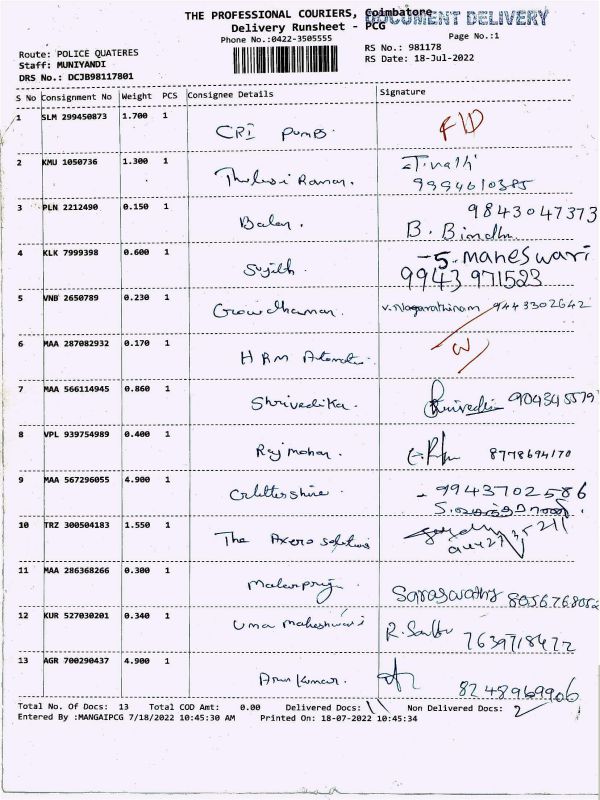 THE PROFESSIONAL COURIERS, Coimbatore
DOCUMENT DELIVERY
Delivery Runsheet - PCG
Phone No.:0422-3505555
Page No.:1
Route: POLICE QUATERES
RS No.: 981178
Staff: MUNIYANDI
RS Date: 18-Jul-2022
DRS No.: DCJB98117801
S No Consignment No Weight PCS Consignee Details Signature
1 SLM 299450873 1.700 1 CRI Pumps F/D
2 KMU 1050736 1.300 1 Thulasi Raman. 9994610385
3 PLN 2212490 0.150 1 Balan. 9843047373
B. Bindhu
4 KLK 7999398 0.600 1 Sujith. S. maheswari
9943 971523
5 VNB 2650789 0.230 1 Gowdhaman. V. Nagarathinam 9443302642
6 MAA 287082932 0.170 1 HRM
7 MAA 566114945 0.860 1 Shrivedika.
8 VPL 939754989 0.400 1 Raj mohan. 8778694170
9 MAA 567296055 4.900 1 9943702586
10 TRZ 300504183 1.550 1 The Axero solutions
11 MAA 286368266 0.300 1 Malarpriya. Saraswathy
12 KUR 527030201 0.340 1 Uma Maheshwari R.
13 AGR 700290437 4.900 1 Arun Kumar. 8248969906
Total No. Of Docs: 13 Total COD Amt: 0.00 Delivered Docs: 11 Non Delivered Docs: 2
Entered By :MANGAIPCG 7/18/2022 10:45:30 AM Printed On: 18-07-2022 10:45:34